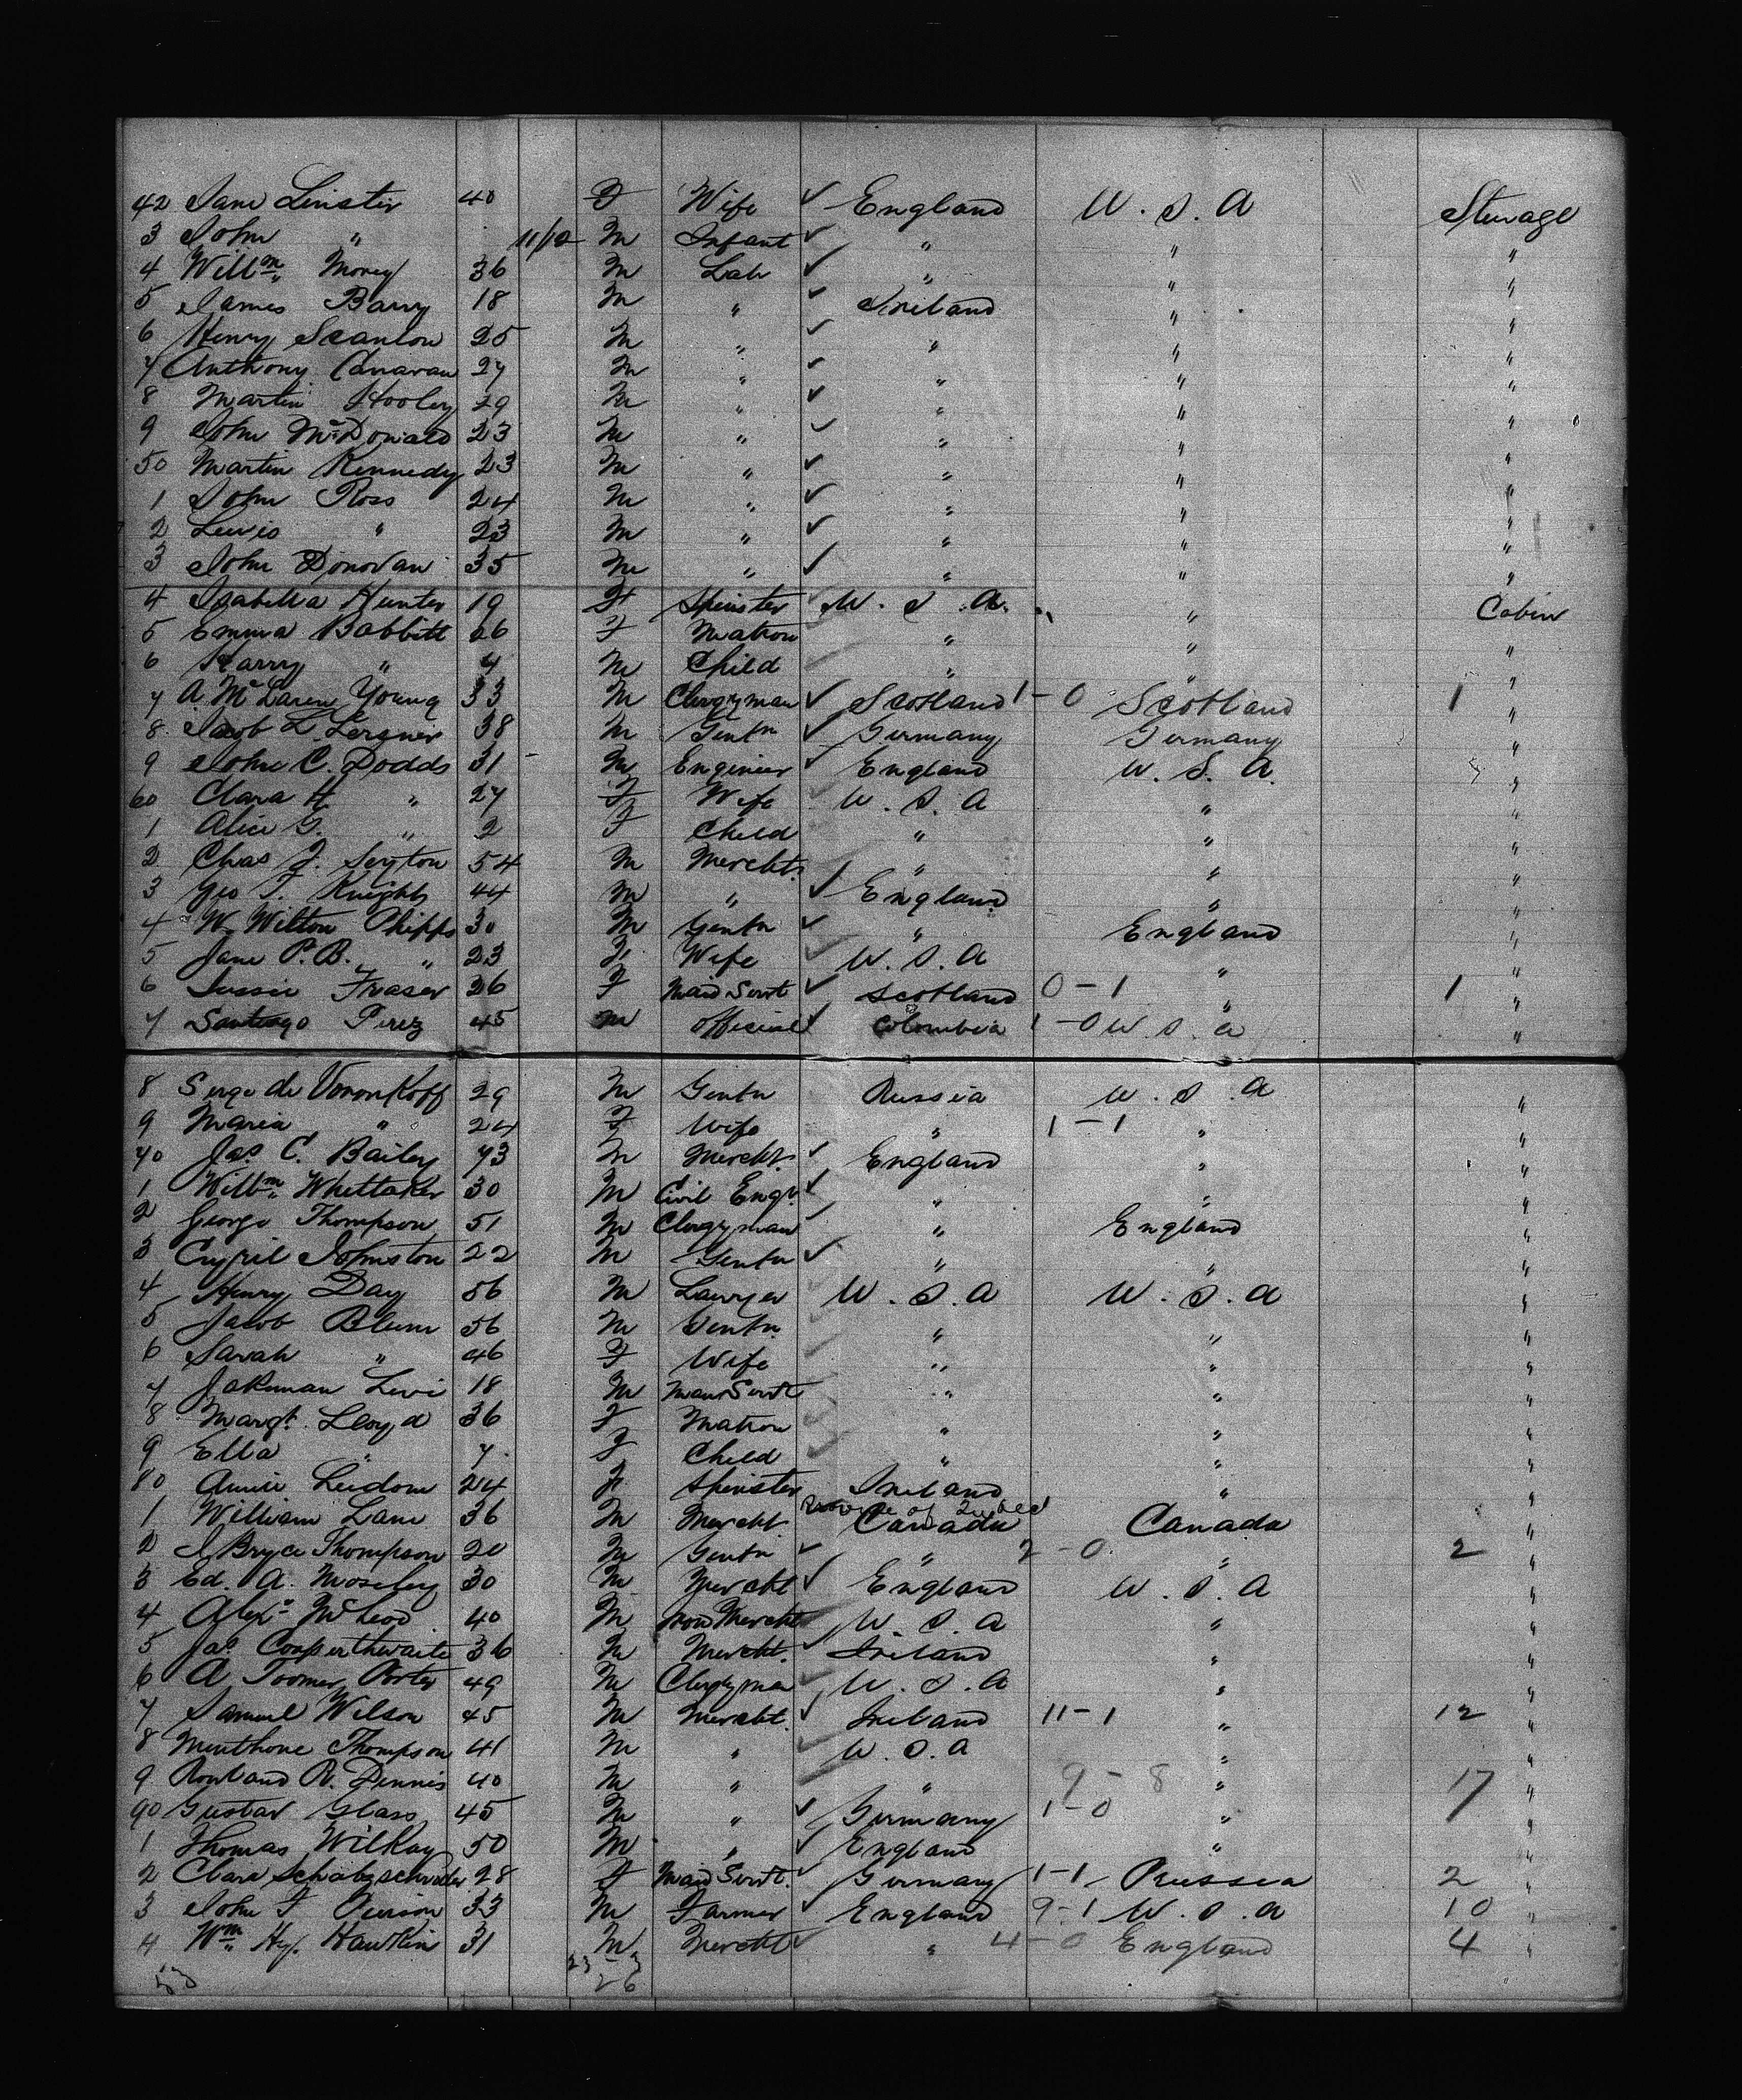 42 Jane Linister 40 F Wife ✓ England U.S.A Steerage
3 John " 11/12 M Infant ✓ " " "
4 Willm Morey 36 M Lab ✓ " " "
5 James Barry 18 M " ✓ Ireland " "
6 Henry Scanlon 25 M " ✓ " " "
7 Anthony Canavan 27 M " ✓ " " "
8 Martin Hooley 29 M " ✓ " " "
9 John McDonald 23 M " ✓ " " "
50 Martin Kennedy 23 M " ✓ " " "
1 John Ross 24 M " ✓ " " "
2 Lewis " 23 M " ✓ " " "
3 John Donovan 35 M " ✓ " " "
4 Isabella Hunter 19 F Spinster U.S.A. " Cabin
5 Emma Babbitt 26 F Matron " " "
6 Harry " 4 M Child " " "
7 A. McLaren Young 33 M Clergyman ✓ Scotland 1-0 Scotland 1 "
8 Jacob L. Lergner 38 M Gentn ✓ Germany Germany "
9 John C. Dodds 31 M Engineer ✓ England U.S.A. "
60 Clara H. " 27 F Wife U.S.A " "
1 Alice G. " 2 F Child " " "
2 Chas J. Seyton 54 M Mercht. " " "
3 Geo T. Knight 44 M " ✓ England " "
4 W. Wilton Phipps 30 M Gentn ✓ " England "
5 Jane P.B. " 23 F Wife U.S.A " "
6 Jessie Fraser 26 F Maid Servt ✓ Scotland 0-1 " 1 "
7 Santiago Perez 45 M Official ✓ Colombia 1-0 U.S.A "
8 Serge de Voronkoff 29 M Gentn Russia U.S.A "
9 Maria " 24 F Wife " 1-1 " "
70 Jas C. Bailey 73 M Mercht. ✓ England " "
1 Willm Whittaker 30 M Civil Engr. ✓ " " "
2 George Thompson 51 M Clergyman ✓ " England "
3 Cyril Johnston 22 M Gentn ✓ " " "
4 Henry Day 56 M Lawyer U.S.A U.S.A "
5 Jacob Blum 56 M Gentn. " " "
6 Sarah " 46 F Wife " " "
7 Jakeman Levi 18 M Man Servt " " "
8 Margt. Lloyd 36 F Matron " " "
9 Ella " 7 F Child " " "
80 Annie Leidom 24 F Spinster Ireland " "
Province of Quebec
1 William Lane 36 M Mercht. Canada Canada "
2 J Bryce Thompson 20 M Gentn ✓ " 2-0 " 2 "
3 Ed. A. Moseley 30 M Mercht ✓ England U.S.A "
4 Alexr McLeod 40 M Mercht U.S.A " "
5 Jas. Cowperthwaite 36 M Mercht. ✓ Ireland " "
6 A Toomer Porter 49 M Clergyman U.S.A " "
7 Samuel Wilson 45 M Mercht. ✓ Ireland 11-1 " 12 "
8 Minthone Thompson 41 M " U.S.A " "
9 Rowland R. Dennis 40 M " " 9-8 " 17 "
90 Gustav Glass 45 M " ✓ Germany 1-0 " "
1 Thomas Wilkay 50 M " ✓ England " "
2 Clara 28 F Maid Servt. ✓ Germany 1-1 Prussia 2 "
3 John F Pierson 33 M Farmer ✓ England 9-1 U.S.A 10 "
4 Wm Hy. Hawkin 31 M Mercht ✓ " 4-0 England 4 "
53 23-3
26